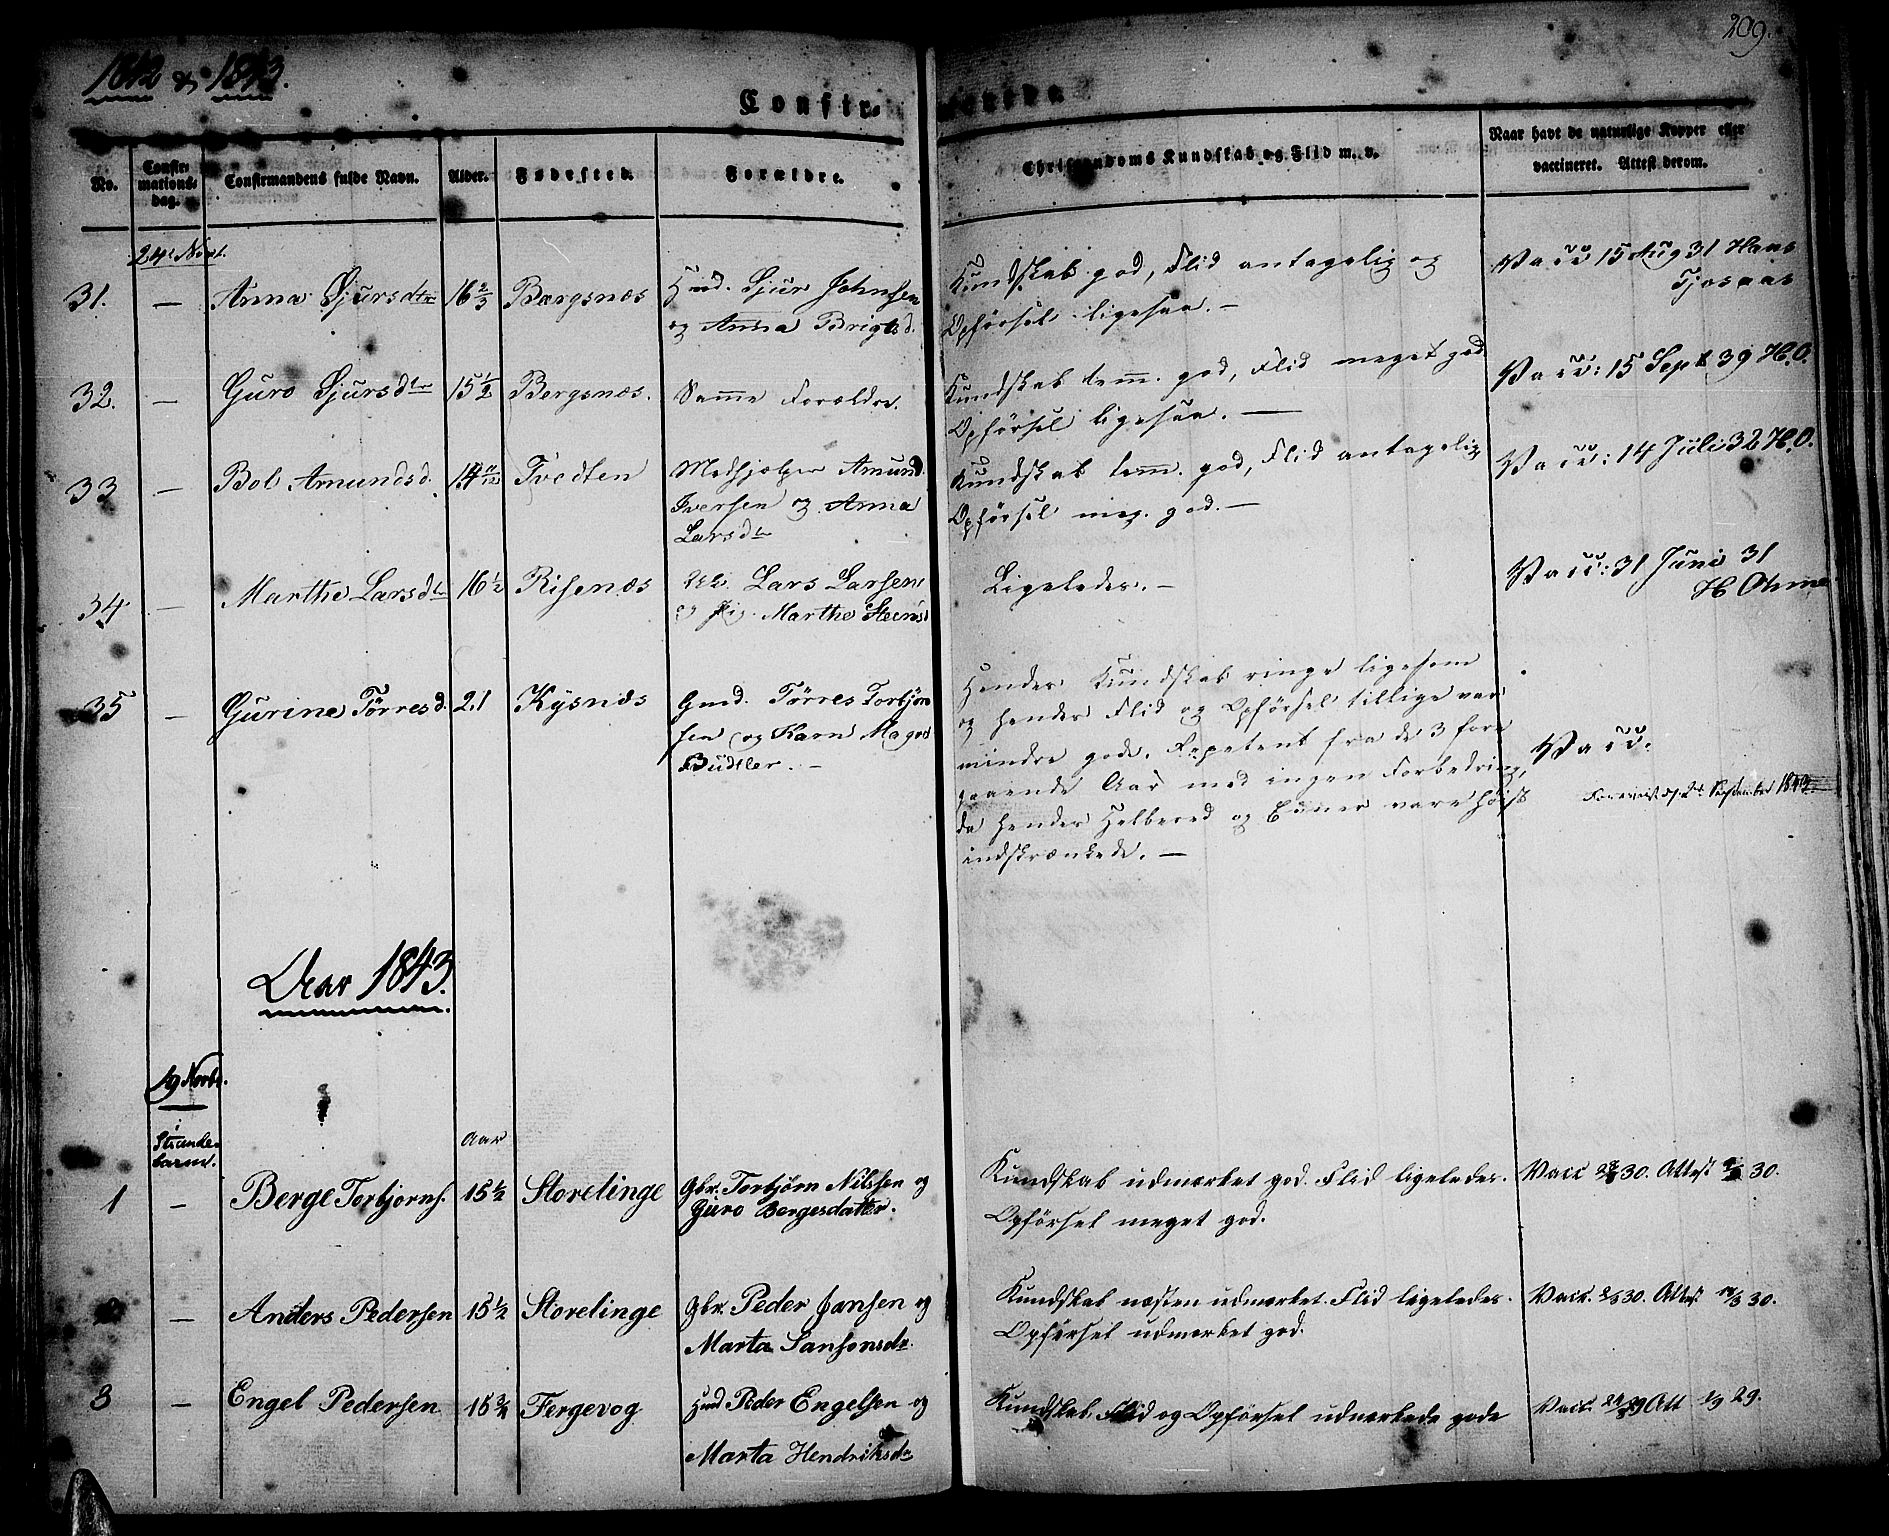 1842 & 1843.
209.
Confirmerede.
No.
Confirmations-dag.
Confirmandens fulde Navn.
Alder.
Fødested.
Forældre.
Christendoms Kundskab og Flid m. v.
Naar havt de naturlige Kopper eller
vaccineret. Attest derom.
24de Novt.
31. — Anna Sjursdtr 16 2/3 Bærgsnæs
Hmd. Sjur Johnsen
og Anna Brigtsd.
Kundskab god, Flid antagelig og
Opførsel ligesaa. —
Vacc 15 Aug 31 Hans
Tjosaas
32. — Guro Sjursdtr 15 1/2 Bergsnæs.
Samme Forældre.
Kundskab tem. god, Flid meget god
Opførsel ligesaa. —
Vacc: 15 Sept 39 H.O.
33 — Bol Amundsd. 14 11/12 Tvedten
Medhjælper Amund
Iversen og Anna
Larsdtr
Kundskab tem. god, Flid antagelig
Opførsel meg. god. —
Vacc: 14 Juli 32 H.O.
34 — Marthe Larsdtr 16 1/2 Risenæs
Lars Larsen
og Pig. Marthe Steensd
Ligeledes. —
Vacc: 31 Juni 31
H
35 — Gurine Tørresd. 21 Kysnæs
Gmd. Tørres Torbjørn
sen og Karn Magrd
Büdtler. —
Hendes Kundskab ringe ligesom
og hendes Flid og Opførsel tillige var
mindre gode. Repetent fra de 3 fore
gaaende Aar med ingen Forbedring,
da hendes Helbered og Evner vare høist
indskrænkede. —
Vacc:
September 1843
Aar 1843.
19 Novbr.
i
Strande-
barm.
Aar
1 — Berge Torbjorns. 15 1/2 Storelinge
Gbr. Torbjørn Nilssen og
Guro Bergesdatter.
Kundskab udmærket god. Flid ligeledes.
Opførsel meget god.
Vacc 30. Attest 30.
2 — Anders Pedersen 15 1/2 Storelinge
Gbr. Peder Jansen og
Marta Sansonsdr.
Kundskab næsten udmærket. Flid ligeledes.
Opførsel udmærket god.
Vacc. 30. Attest 30.
3 — Engel Pedersen 15 3/4 Fergevog
Hmd Peder Engelsen og
Marta Hendriksdr
Kundskab, Flid og Opførsel udmærkede gode
Vacc. 29 Att 1/9 29.